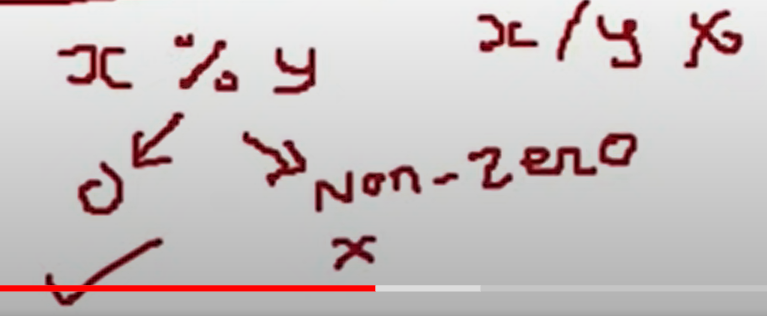 x % y
x / y %
0
Non-zero
x